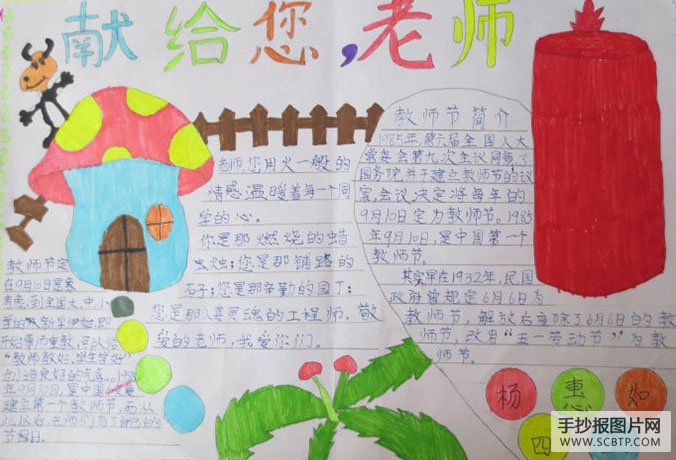 献给您,老师
老师,您用火一般的
情感温暖着每一个同
学的心。
你是那燃烧的蜡
虫烛;您是那铺路的
石子;您是那辛勤的园丁;
您是那人类灵魂的工程师,敬
爱的老师,我爱你们。
教师节简介
1985年,第六届全国人大
常委会第九次会议同意了
国务院关于建立教师节的议
案,会议决定将每年的
9月10日定为教师节。1985
年9月10日,是中国第一个
教师节。
其实早在1932年,民国
政府曾规定6月6日为
教师节,解放后废除了6月6日的教
师节,改用“五一劳动节”为教
师节。
教师节定
在9月10日是
到全国大、中、小
新学
开始
“教师教好,学生学好”
良好的
年9月10日
建立第一个教师节,而从
此以后,老师们有了自己的
节日。
杨惠如
四
手抄报图片网
WWW.SCBTP.COM